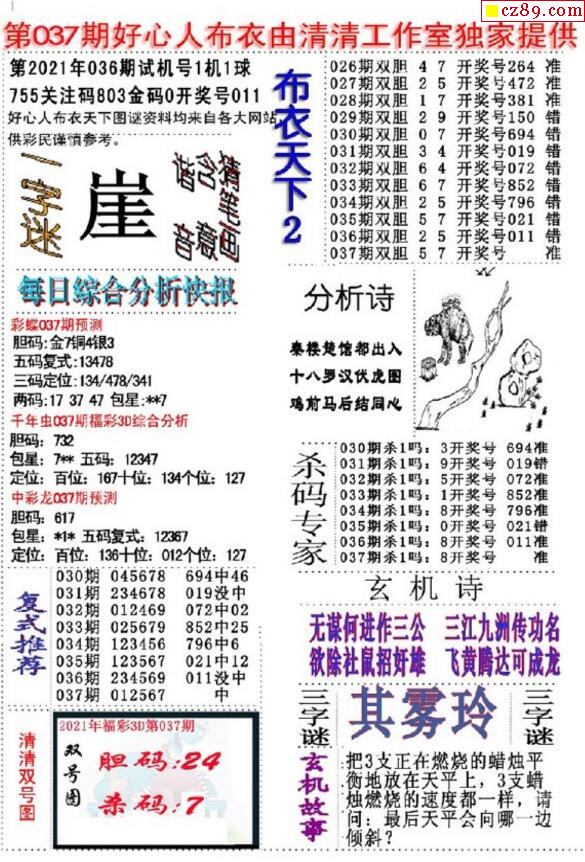 cz89.com
第037期好心人布衣由清清工作室独家提供
第2021年036期试机号1机1球
755关注码803金码0开奖号011
好心人布衣天下图谜资料均来自各大网站
供彩民谨慎参考。
一字谜
崖
猜笔画
含意
谐音
每日综合分析快报
彩蝶037期预测
胆码:金7铜4银3
五码复式:13478
三码定位:134/478/341
两码:17 37 47 包星:**7
千年虫037期福彩3D综合分析
胆码: 732
包星: 7** 五码: 12347
定位: 百位: 167十位: 134个位: 127
中彩龙037期预测
胆码: 617
包星: *1* 五码复式: 12367
定位: 百位: 136十位: 012个位: 127
复式推荐
030期 045678 694中46
031期 234678 019没中
032期 012469 072中02
033期 025679 852中25
034期 123456 796中6
035期 123567 021中12
036期 234569 011没中
037期 012567 中
清清双号图
2021年福彩3D第037期
双号图
胆码:24
杀码:7
布衣天下2
026期双胆 4 7 开奖号264 准
027期双胆 2 5 开奖号472 准
028期双胆 1 7 开奖号381 准
029期双胆 2 9 开奖号150 错
030期双胆 0 7 开奖号694 错
031期双胆 3 4 开奖号019 错
032期双胆 6 4 开奖号072 错
033期双胆 6 7 开奖号852 错
034期双胆 2 5 开奖号796 错
035期双胆 5 7 开奖号021 错
036期双胆 2 5 开奖号011 错
037期双胆 5 7 开奖号 准
分析诗
秦楼楚馆都出入
十八罗汉伏虎图
鸡前马后结同心
杀码专家
030期杀1吗: 3开奖号 694准
031期杀1吗: 9开奖号 019错
032期杀1吗: 5开奖号 072准
033期杀1吗: 1开奖号 852准
034期杀1吗: 8开奖号 796准
035期杀1吗: 0开奖号 021错
036期杀1吗: 8开奖号 011准
037期杀1吗: 8开奖号 准
玄机诗
无谋何进作三公 三江九洲传功名
欲除社鼠招奸雄 飞黄腾达可成龙
三字谜
其雾玲
三字谜
玄机故事
把3支正在燃烧的蜡烛平
衡地放在天平上，3支蜡
烛燃烧的速度都一样，请
问：最后天平会向哪一边
倾斜？